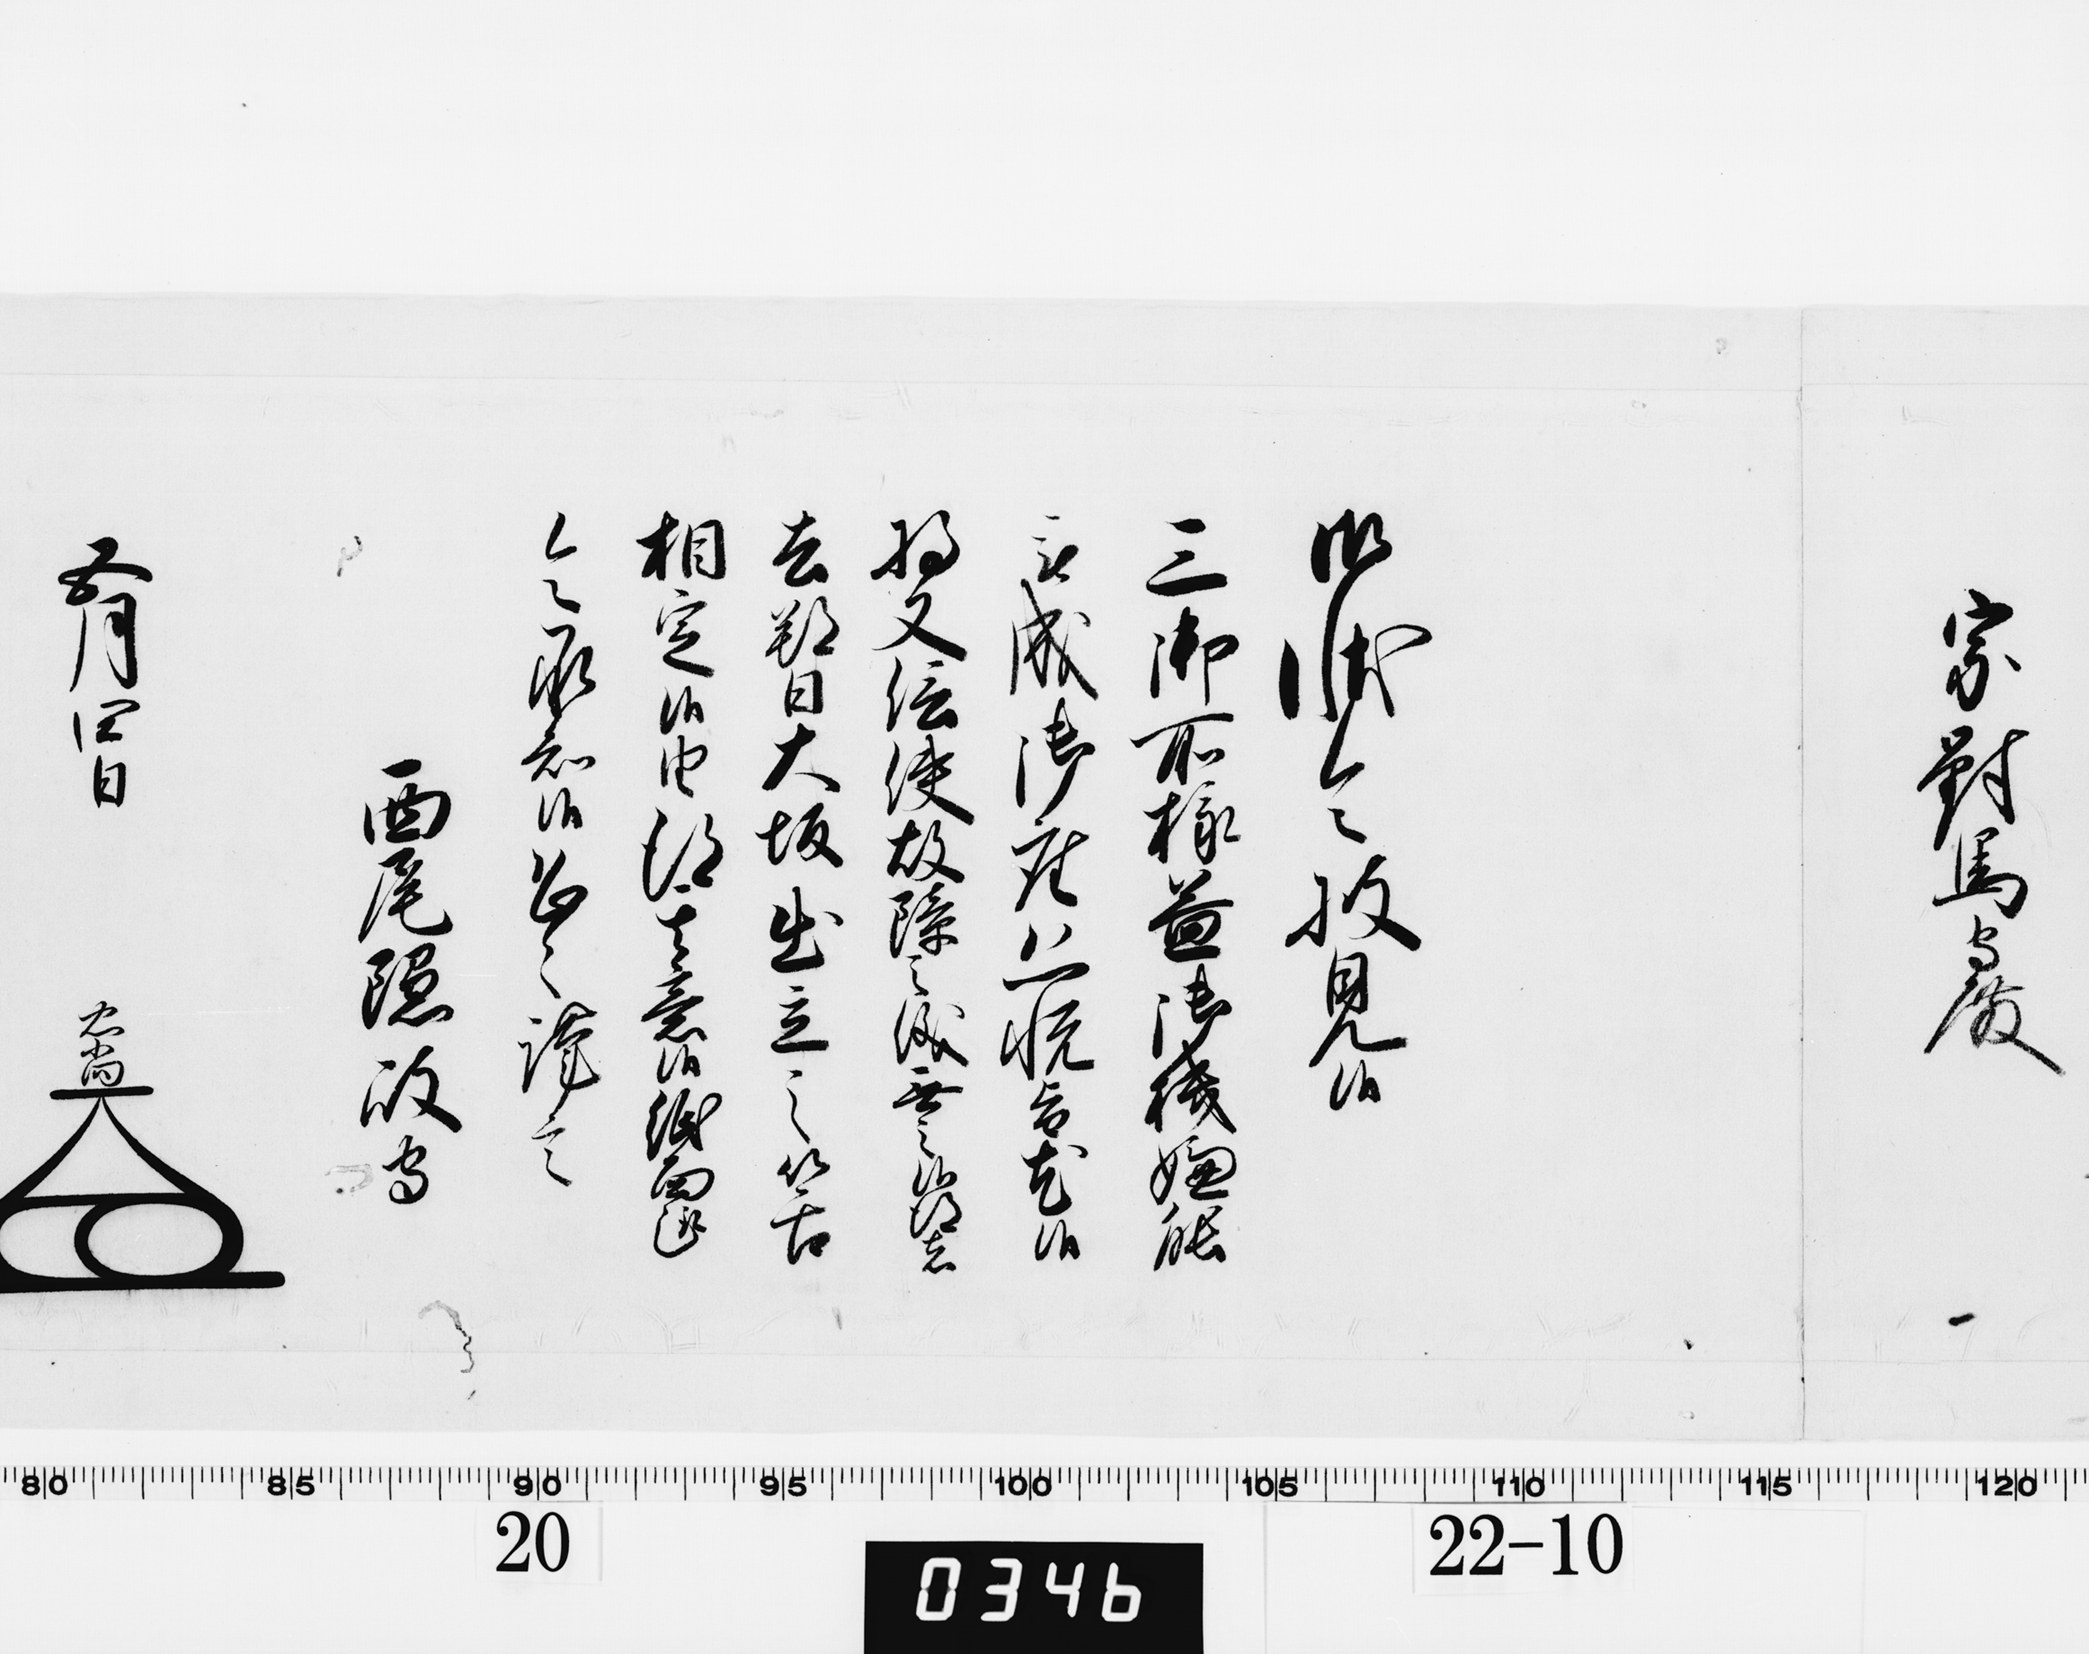 宗對馬守殿
御状令披見候
三御所様益御機嫌能
被成御座恐悦旨尤候
将又信使故障之儀無之候得者
去朔日大坂出立之筈
相定候由得其意候紙面趣
令承知候恐々謹言
西尾隠岐守
五月四日
忠尚
80 85 90 95 100 105 110 115 120
20
22-10
0346